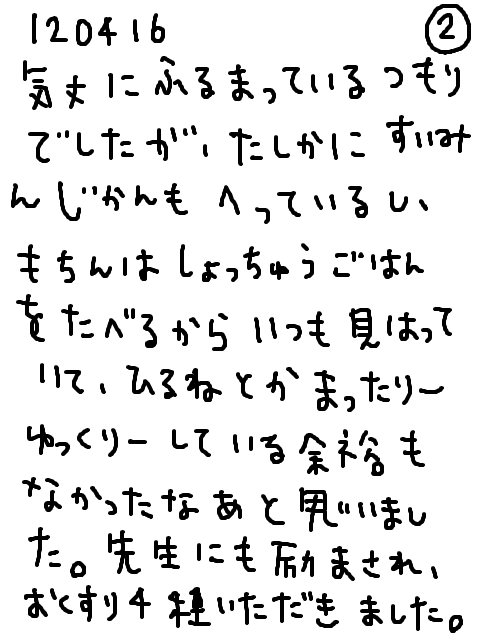 120416 ②
気丈にふるまっているつもり
でしたが、たしかにすいみ
んじかんもへっているし、
もちんはしょっちゅうごはん
をたべるからいつも見はって
いて、ひるねとかまったりー
ゆっくりーしている余裕も
なかったなあと思いまし
た。先生にも励まされ、
おくすり4種いただきました。